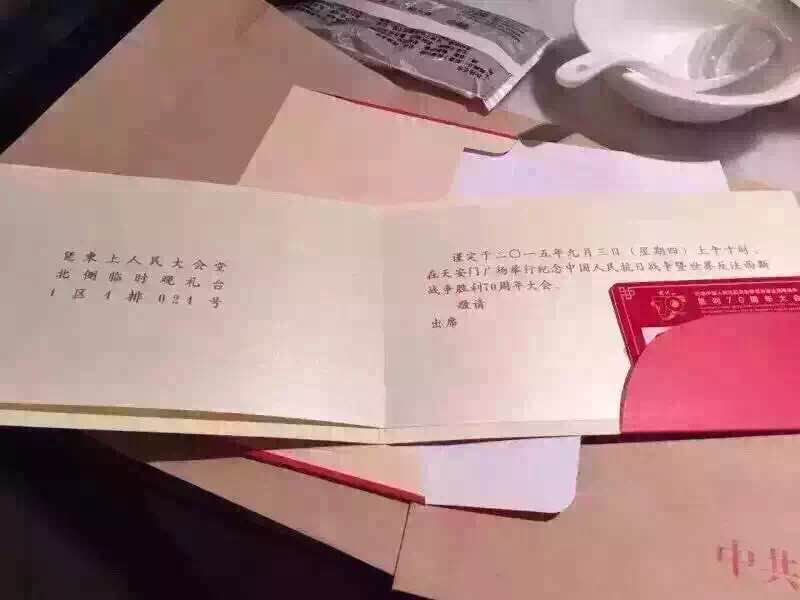 凭柬上人民大会堂
北侧临时观礼台
1区4排024号
谨定于二〇一五年九月三日（星期四）上午十时，
在天安门广场举行纪念中国人民抗日战争暨世界反法西斯
战争胜利70周年大会。
敬请
出席
胜利70周年大会
中共